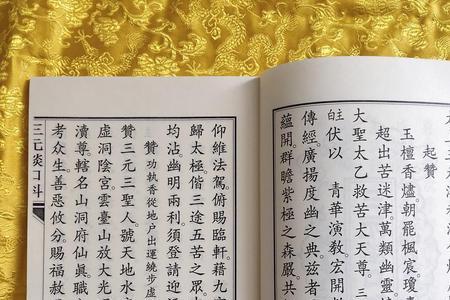 起贊
玉檀香爐。朝罷楓宸。瓊
超出苦迷津萬類幽靈
大聖太乙救苦大天尊。三
主白伏以 青華演教。宏開
傳經。廣揚度幽之典。茲者
蘊開。群瞻紫極之森嚴。共
仰維法駕。俯賜臨軒。藉九
歸太極。偕三途五苦之眾。
均沾幽明兩利。須登請迎
贊 功執香從地戶出運繞步虛
贊三元三聖人。號天地水
虛洞陰宮。雲臺山放大光
瀆尊。轄名山洞府仙眞。職
考眾生善惡攸分。賜福赦
三元燄口科